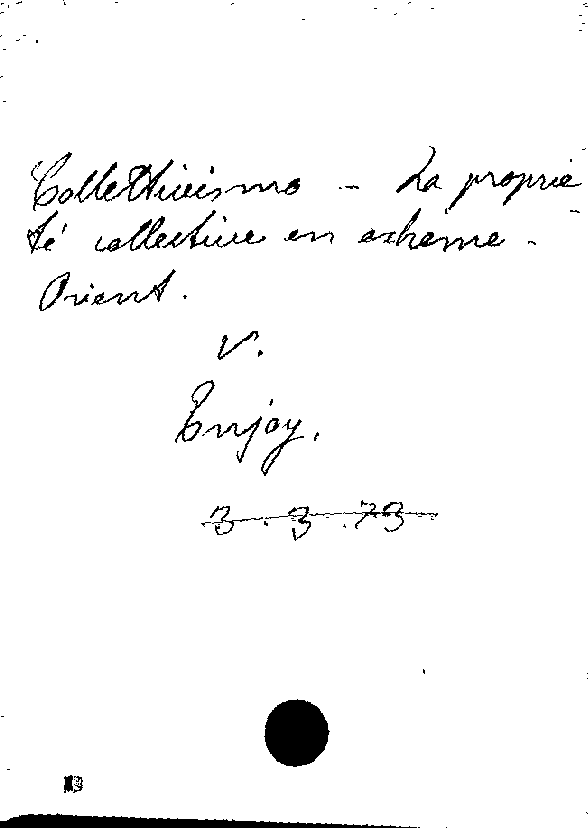 Collettivismo - La proprié
té collective en extrême -
Orient.
V.
Enjoy.
3.3.73